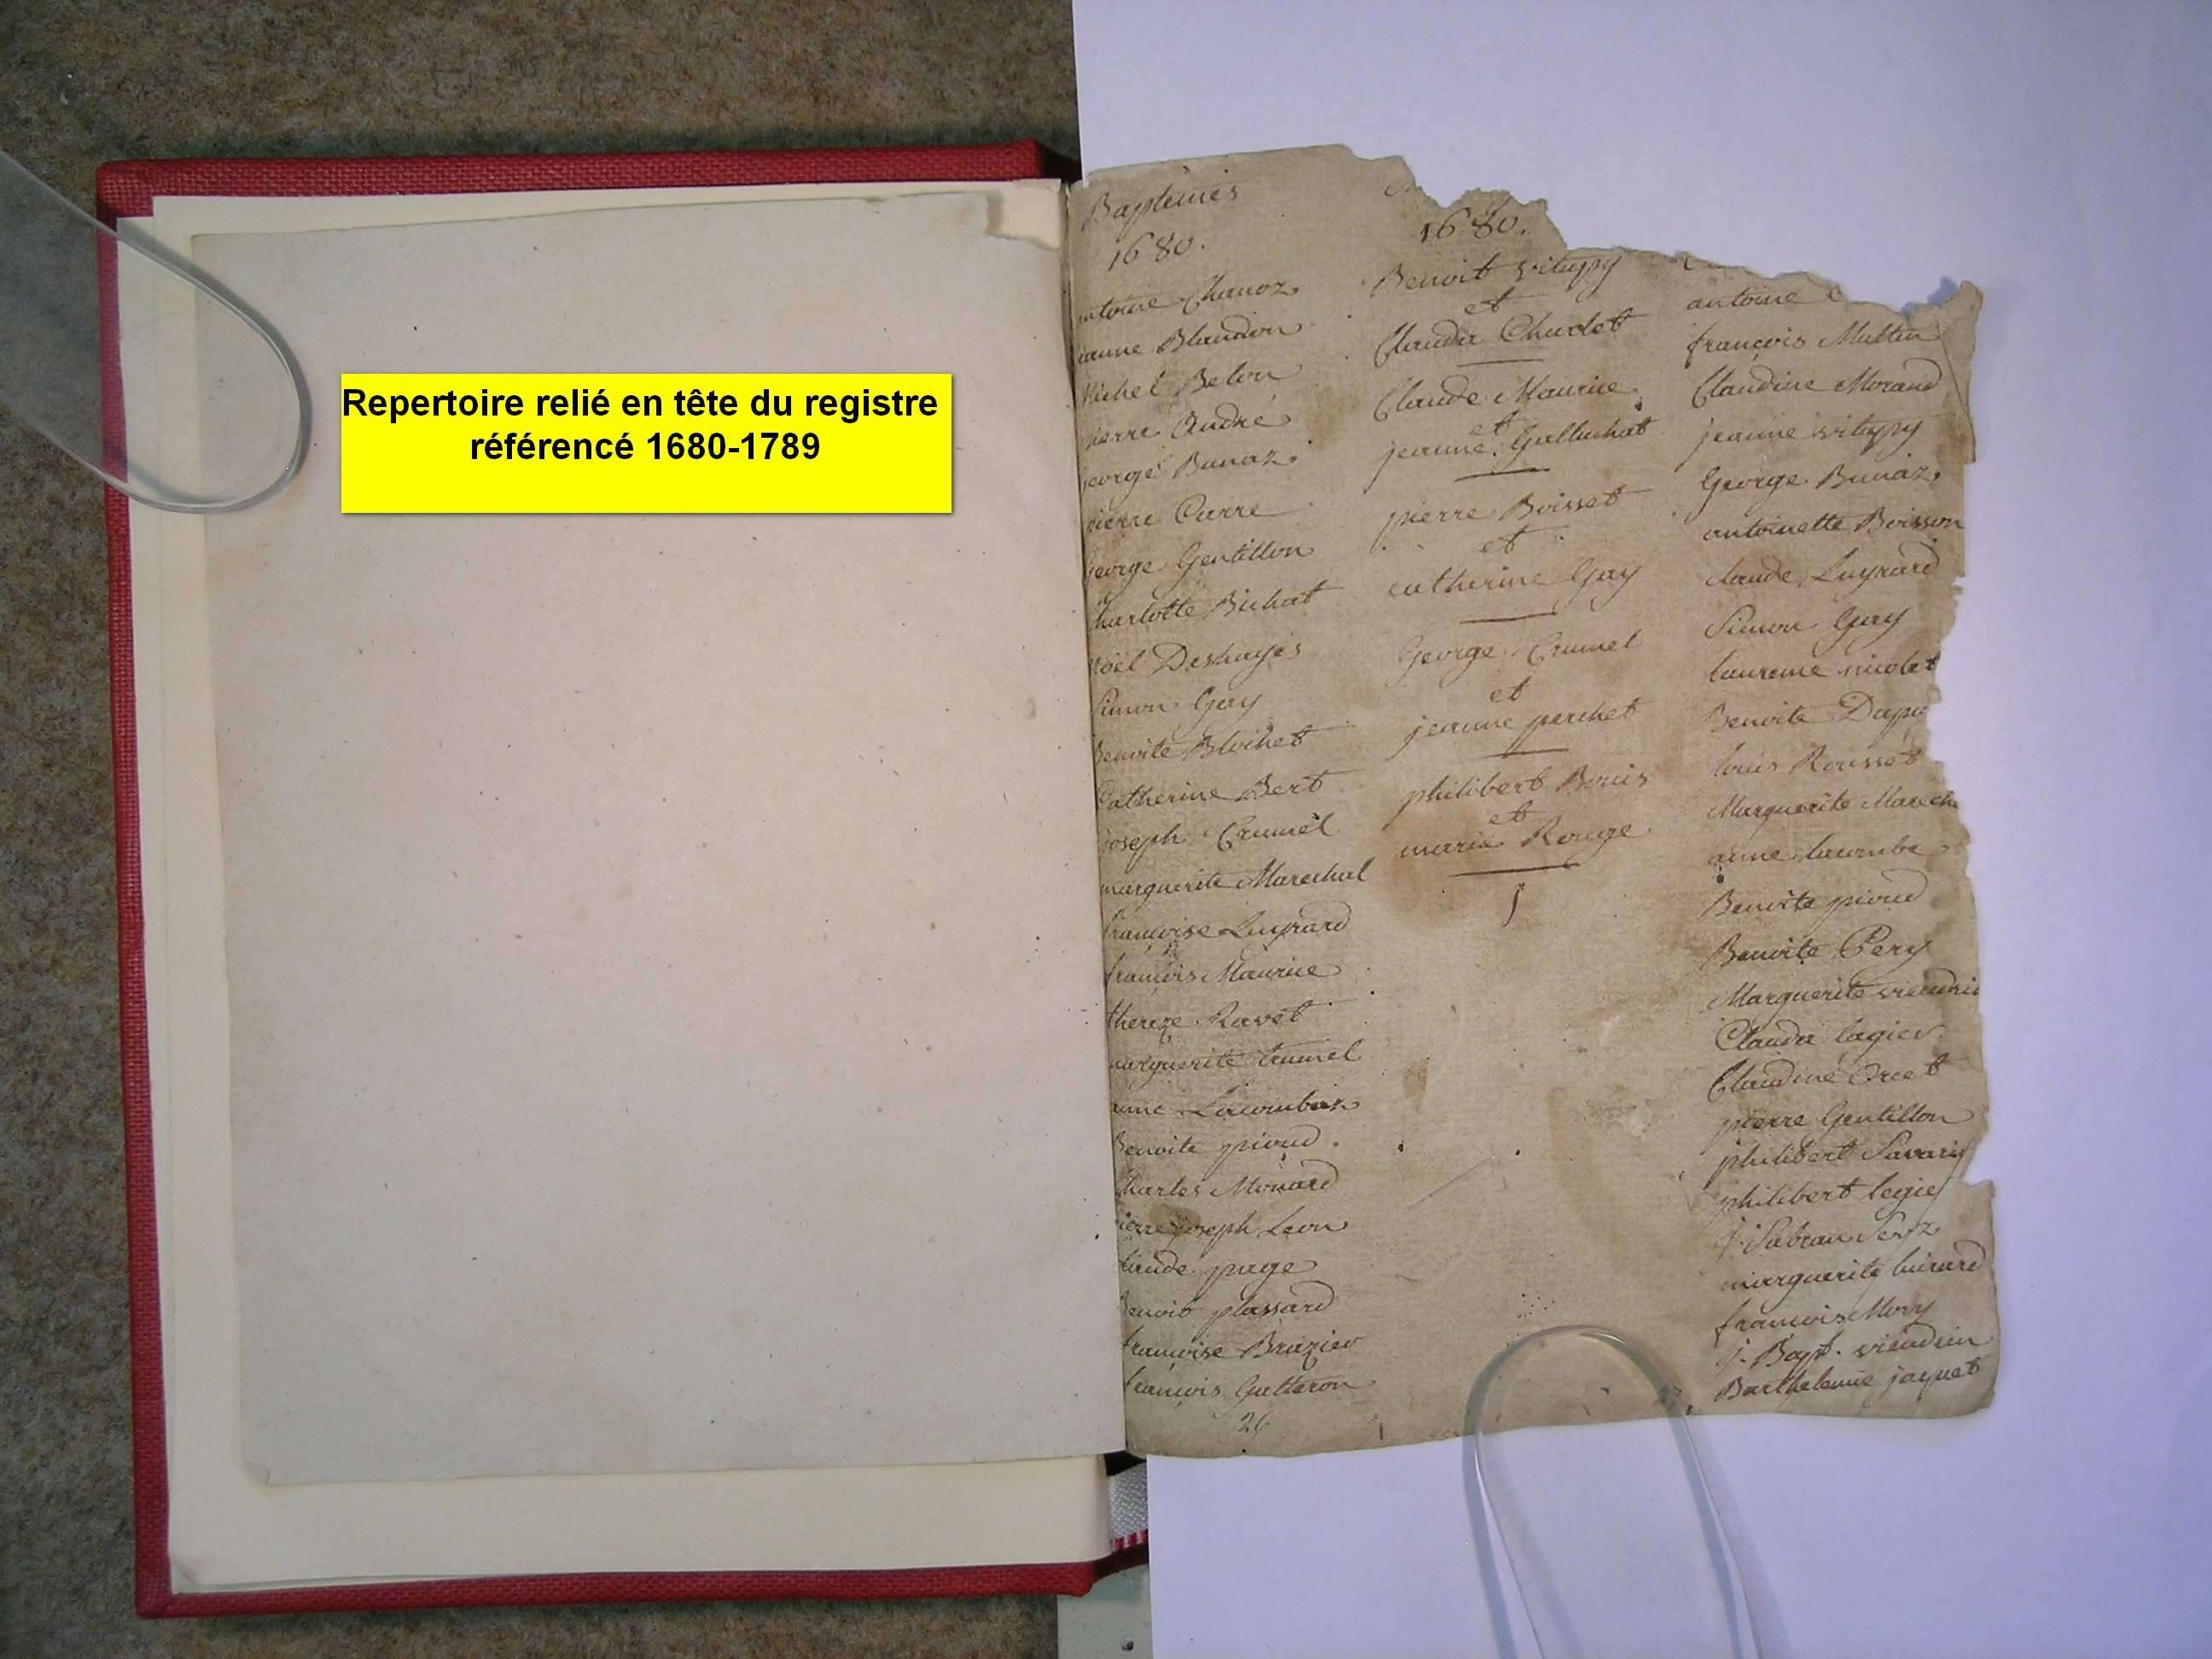 Repertoire relié en tête du registre
référencé 1680-1789
Baptêmes
1680.
ntoine Chanoz
eanne Blandon
Michel Belon
pierre André
george Bunaz
pierre Carre
george Gentillon
harlotte Bichat
Noël Deshayes
Simon Gay
Benoite Bloihet
Catherine Bert
joseph Crumel
marguerite Marechal
françoise Luyrard
françois Maurice
thereze Ravet
marguerite Crumel
anne Lacombaz
Benoite pioud
Charles Monard
pierre joseph Leon
laude page
Benoit plassard
françoise Brazier
françois Gutteron
26
1680.
Benoit vitupy
et
Clauda Chadet
Claude Maurice
et
jeanne Galluchat
pierre Boisset
et
catherine Gay
George Crumel
et
jeanne perchet
philibert Bouis
et
marie Rouge
antoine
françois Multin
Claudine Morand
jeanne vitupy
George Bunaz
antoinette Boisson
claude Luyrard
Simon Gay
laurence nicolet
Benoite Dupu
louis Rousset
Marguerite Marech
anne lacombe
Benoite pioud
Benoite Pery
Marguerite viendri
Clauda lagier
Claudine Oret
pierre Gentillon
philibert Savari
philibert legie
marguerite luirard
françois Mory
j. Bapt. viendrin
Barthelemie jaquet